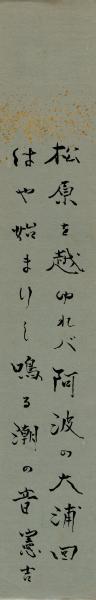 松原を越ゆれバ阿波の大浦回
はや始まりし鳴る潮の音 憲吉